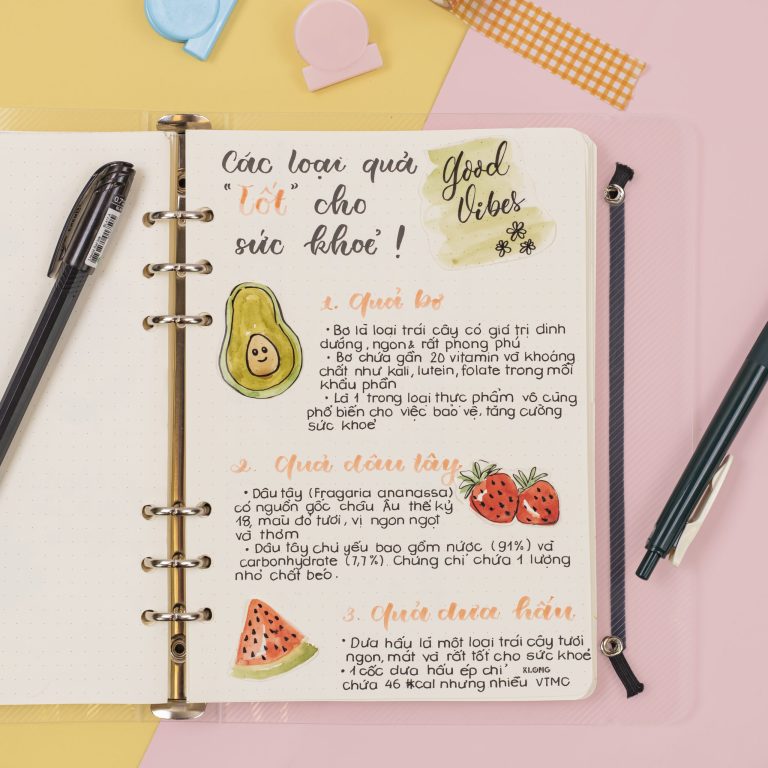 Các loại quả
"Tốt" cho
sức khoẻ !
Good
Vibes
1. Quả bơ
• Bơ là loại trái cây có giá trị dinh
dưỡng, ngon & rất phong phú
• Bơ chứa gần 20 vitamin và khoáng
chất như kali, lutein, folate trong mỗi
khẩu phần
• Là 1 trong loại thực phẩm vô cùng
phổ biến cho việc bảo vệ, tăng cường
sức khoẻ
2. Quả dâu tây
• Dâu tây (Fragaria ananassa)
có nguồn gốc châu Âu thế kỷ
18, màu đỏ tươi, vị ngon ngọt
và thơm
• Dâu tây chủ yếu bao gồm nước (91%) và
carbonhydrate (7,7%). Chúng chỉ chứa 1 lượng
nhỏ chất béo.
3. Quả dưa hấu
• Dưa hấu là một loại trái cây tươi
ngon, mát và rất tốt cho sức khoẻ
• 1 cốc dưa hấu ép chỉ KLONG
chứa 46 kcal nhưng nhiều VTMC
0.7